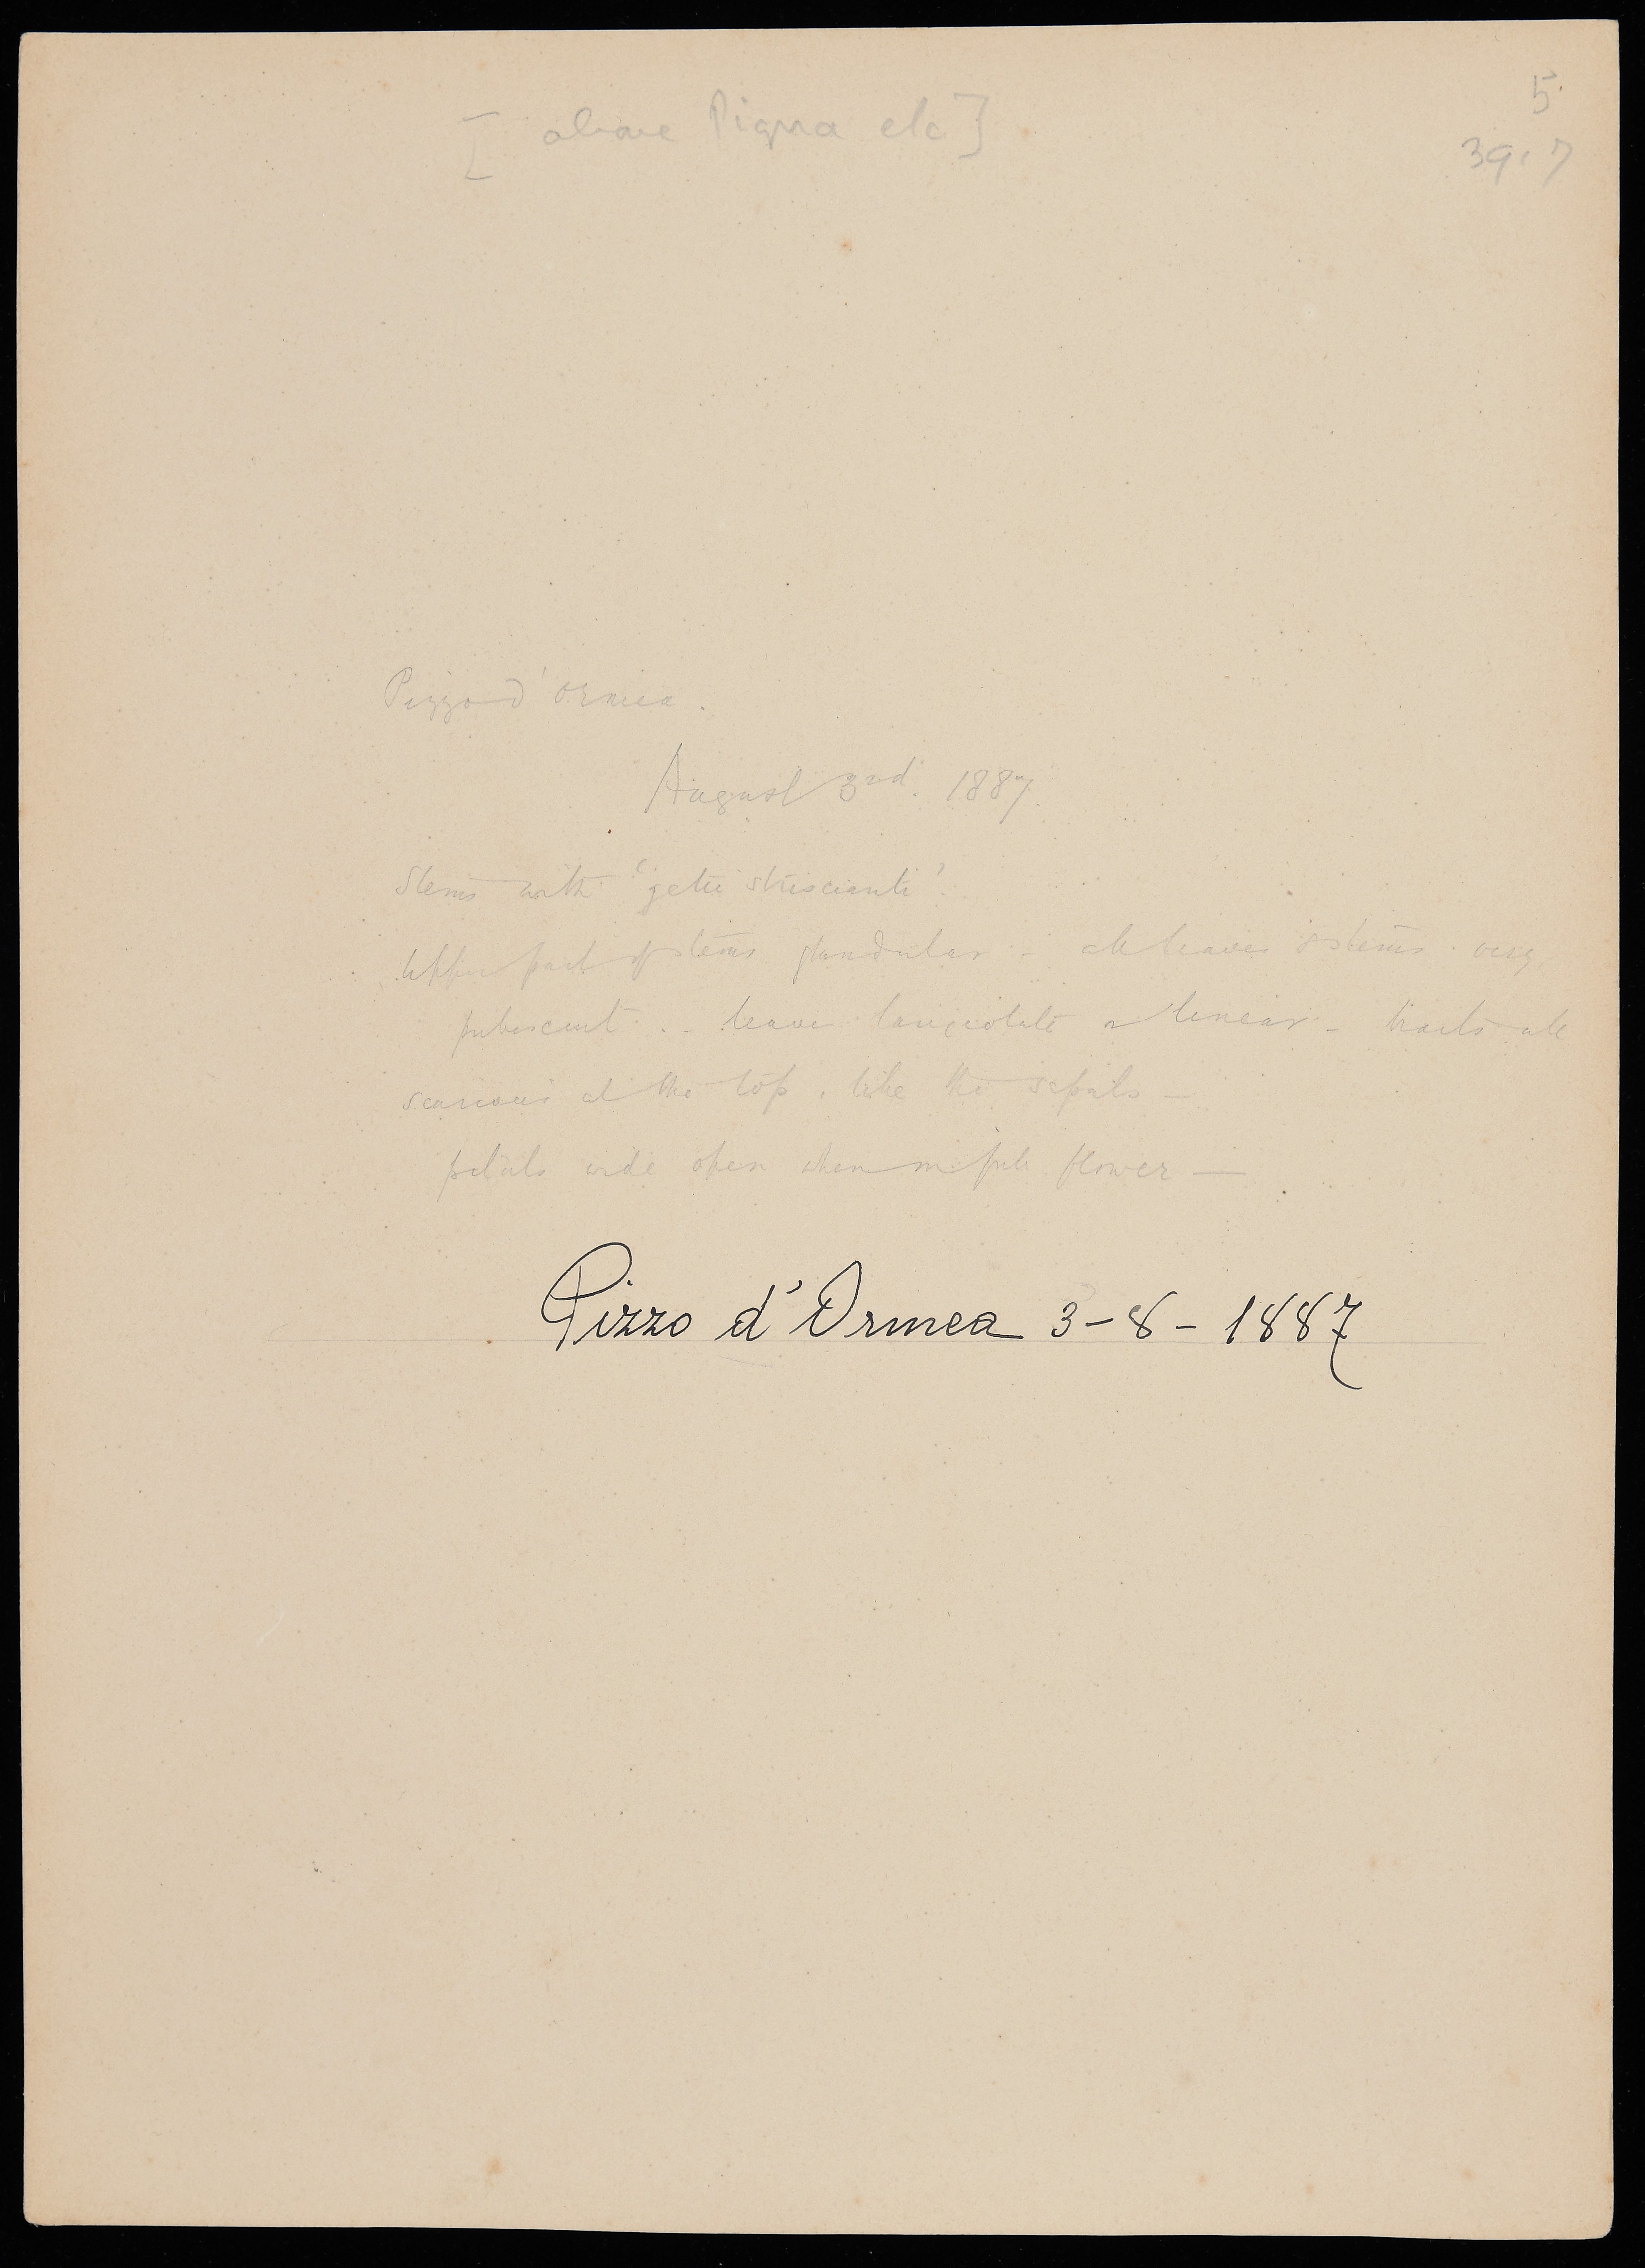 5.
[ above Pigna etc ]
39.7
Pizzo d'Ormea.
August 3rd. 1887.
Stems with 'getti striscianti'.
Upper part of stems glandular - all leaves & stems very
pubescent. - leaves lanceolate or linear - bracts all
scarious at the top, like the sepals -
petals wide open when in full flower —
Pizzo d'Ormea 3-8-1887